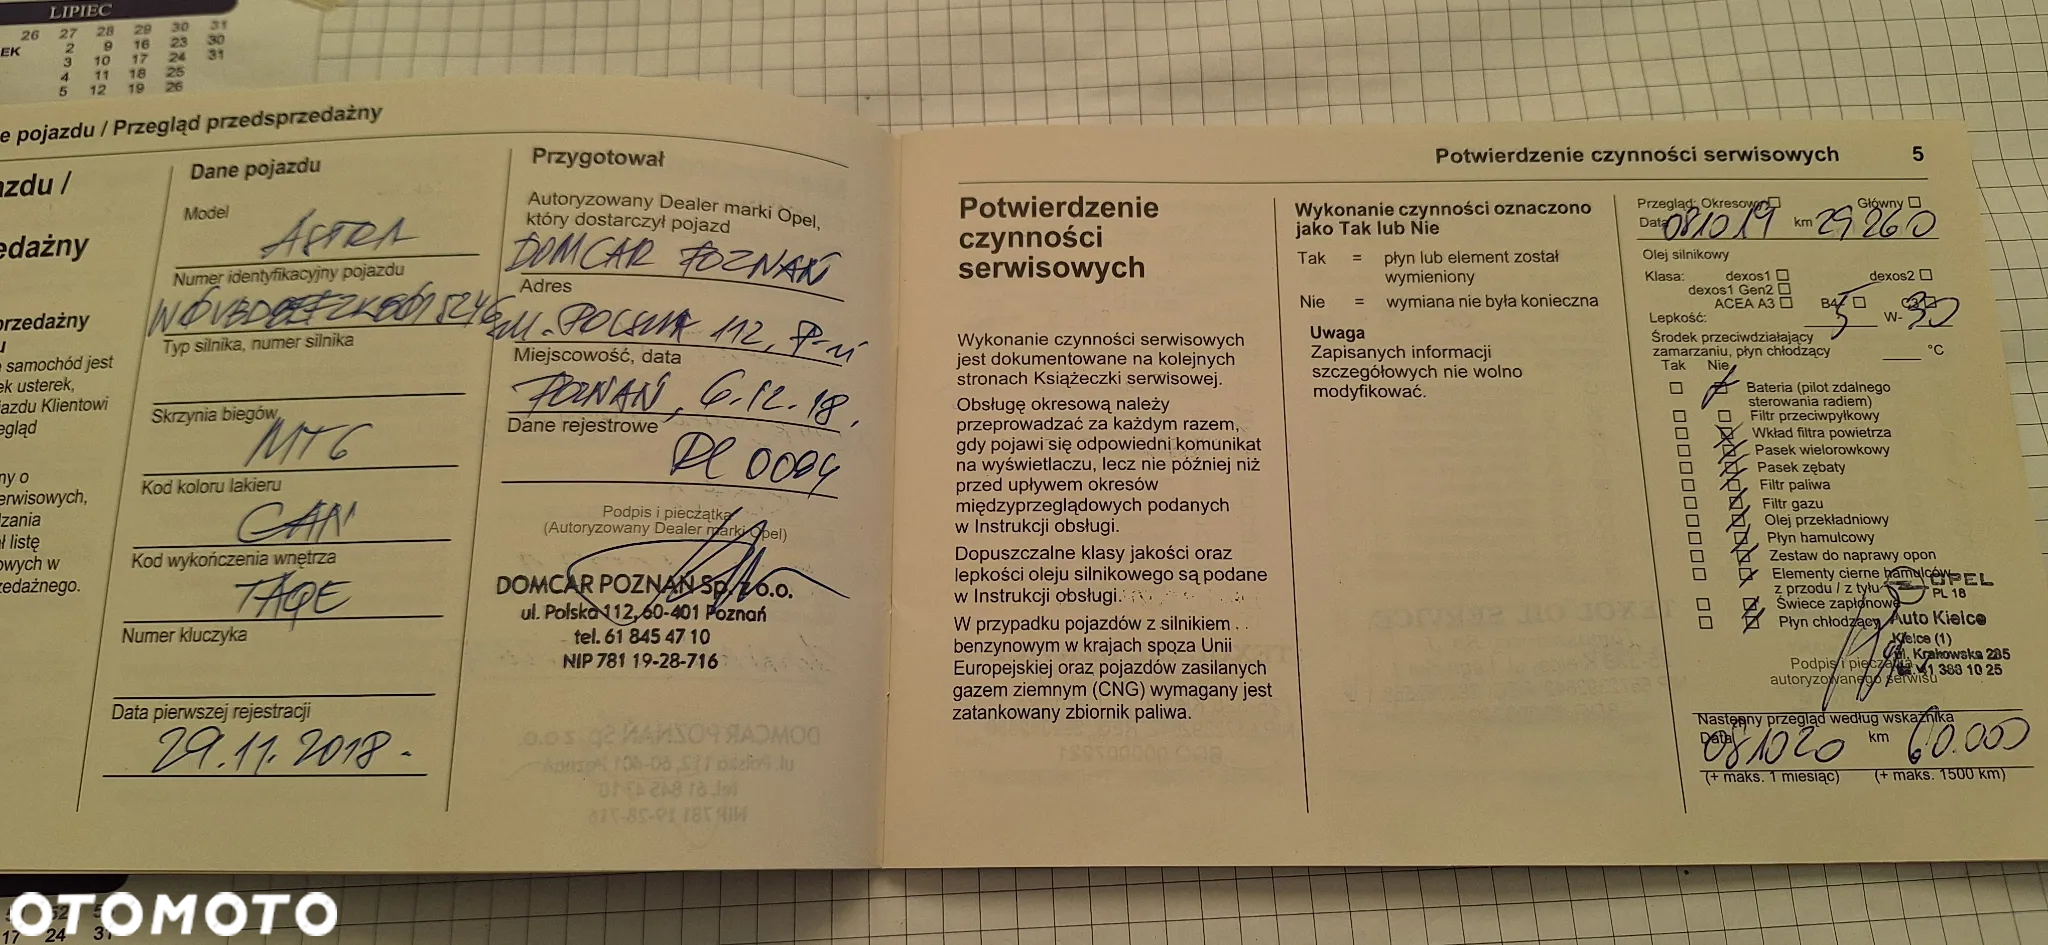 LIPIEC
26 27 28 29 30 31
EK 2 9 16 23 30
3 10 17 24 31
4 11 18 25
5 12 19 26
e pojazdu / Przegląd przedsprzedażny
azdu /
edażny
orzedażny
u
e samochód jest
ek usterek,
jazdu Klientowi
egląd
ny o
erwisowych,
dzania
ał listę
owych w
zedażnego.
Dane pojazdu
Model
ASTRA
Numer identyfikacyjny pojazdu
Typ silnika, numer silnika
Skrzynia biegów
MT6
Kod koloru lakieru
GAN
Kod wykończenia wnętrza
TAQE
Numer kluczyka
Data pierwszej rejestracji
29.11.2018.
Przygotował
Autoryzowany Dealer marki Opel,
który dostarczył pojazd
DOMCAR POZNAŃ
Adres
ul. POLSKA 112, P-ń
Miejscowość, data
POZNAŃ, 6.12.18.
Dane rejestrowe
0094
Podpis i pieczątka
(Autoryzowany Dealer marki Opel)
DOMCAR POZNAŃ Sp. z o.o.
ul. Polska 112, 60-401 Poznań
tel. 61 845 47 10
NIP 781 19-28-716
Potwierdzenie czynności serwisowych 5
Potwierdzenie
czynności
serwisowych
Wykonanie czynności serwisowych
jest dokumentowane na kolejnych
stronach Książeczki serwisowej.
Obsługę okresową należy
przeprowadzać za każdym razem,
gdy pojawi się odpowiedni komunikat
na wyświetlaczu, lecz nie później niż
przed upływem okresów
międzyprzeglądowych podanych
w Instrukcji obsługi.
Dopuszczalne klasy jakości oraz
lepkości oleju silnikowego są podane
w Instrukcji obsługi.
W przypadku pojazdów z silnikiem
benzynowym w krajach spoza Unii
Europejskiej oraz pojazdów zasilanych
gazem ziemnym (CNG) wymagany jest
zatankowany zbiornik paliwa.
Wykonanie czynności oznaczono
jako Tak lub Nie
Tak = płyn lub element został
wymieniony
Nie = wymiana nie była konieczna
Uwaga
Zapisanych informacji
szczegółowych nie wolno
modyfikować.
Przegląd: Okresowy Główny
Data 081019 km 29260
Olej silnikowy
Klasa: dexos1 dexos2
dexos1 Gen2
ACEA A3 B4 C3
Lepkość: 5 W- 30
Środek przeciwdziałający
zamarzaniu, płyn chłodzący °C
Tak Nie
Bateria (pilot zdalnego
sterowania radiem)
Filtr przeciwpyłkowy
Wkład filtra powietrza
Pasek wielorowkowy
Pasek zębaty
Filtr paliwa
Filtr gazu
Olej przekładniowy
Płyn hamulcowy
Zestaw do naprawy opon
Elementy cierne hamulców
z przodu / z tyłu
Świece zapłonowe
Płyn chłodzący
OPEL
PL 18
Auto Kielce
Kielce (1)
ul. Krakowska 285
tel. 41 383 10 25
Podpis i pieczątka
autoryzowanego serwisu
Następny przegląd według wskaźnika
Data 081020 km 60.000
(+ maks. 1 miesiąc) (+ maks. 1500 km)
OTOMOTO
52
17 24 31